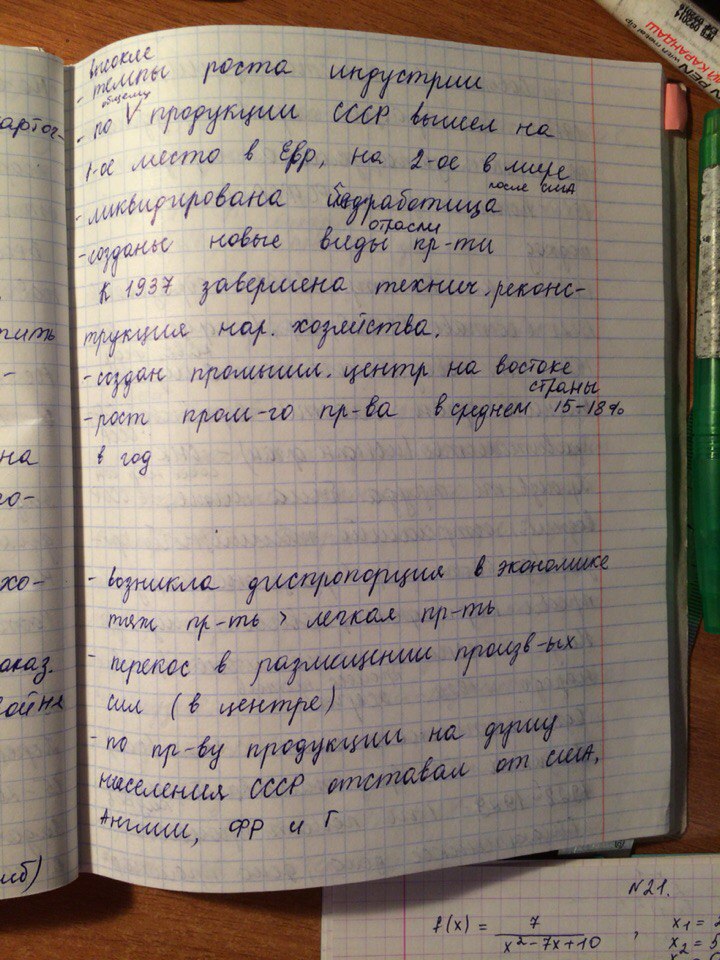 высокие
- темпы роста индустрии
общему
- по V продукции СССР вышел на
1-ое место в Евр, на 2-ое в мире
после США
- ликвидирована безработица
отрасли
- созданы новые виды пр-ти
К 1937 завершена технич. реконс-
трукция нар. хозяйства.
- создан промышл. центр на востоке
страны
- рост пром-го пр-ва в среднем 15-18%
в год
- возникла диспропорция в экономике
тяж пр-ть > легкая пр-ть
- перекос в размещении произв-ых
сил (в центре)
- по пр-ву продукции на душу
населения СССР отставал от США,
Англии, ФР и Г
артог-
тить
-
на
го-
хо-
аказ.
ойна
сб)
КАРАНДАШ
N21.
f(x) = 7 / x²-7x+10 , x₁ = 2
x₂ = 5